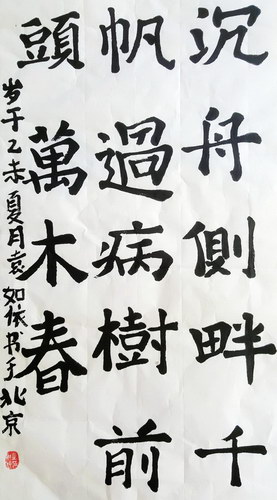 沉舟側畔千
帆過病樹前
頭萬木春
岁于乙未夏月袁如依书于北京